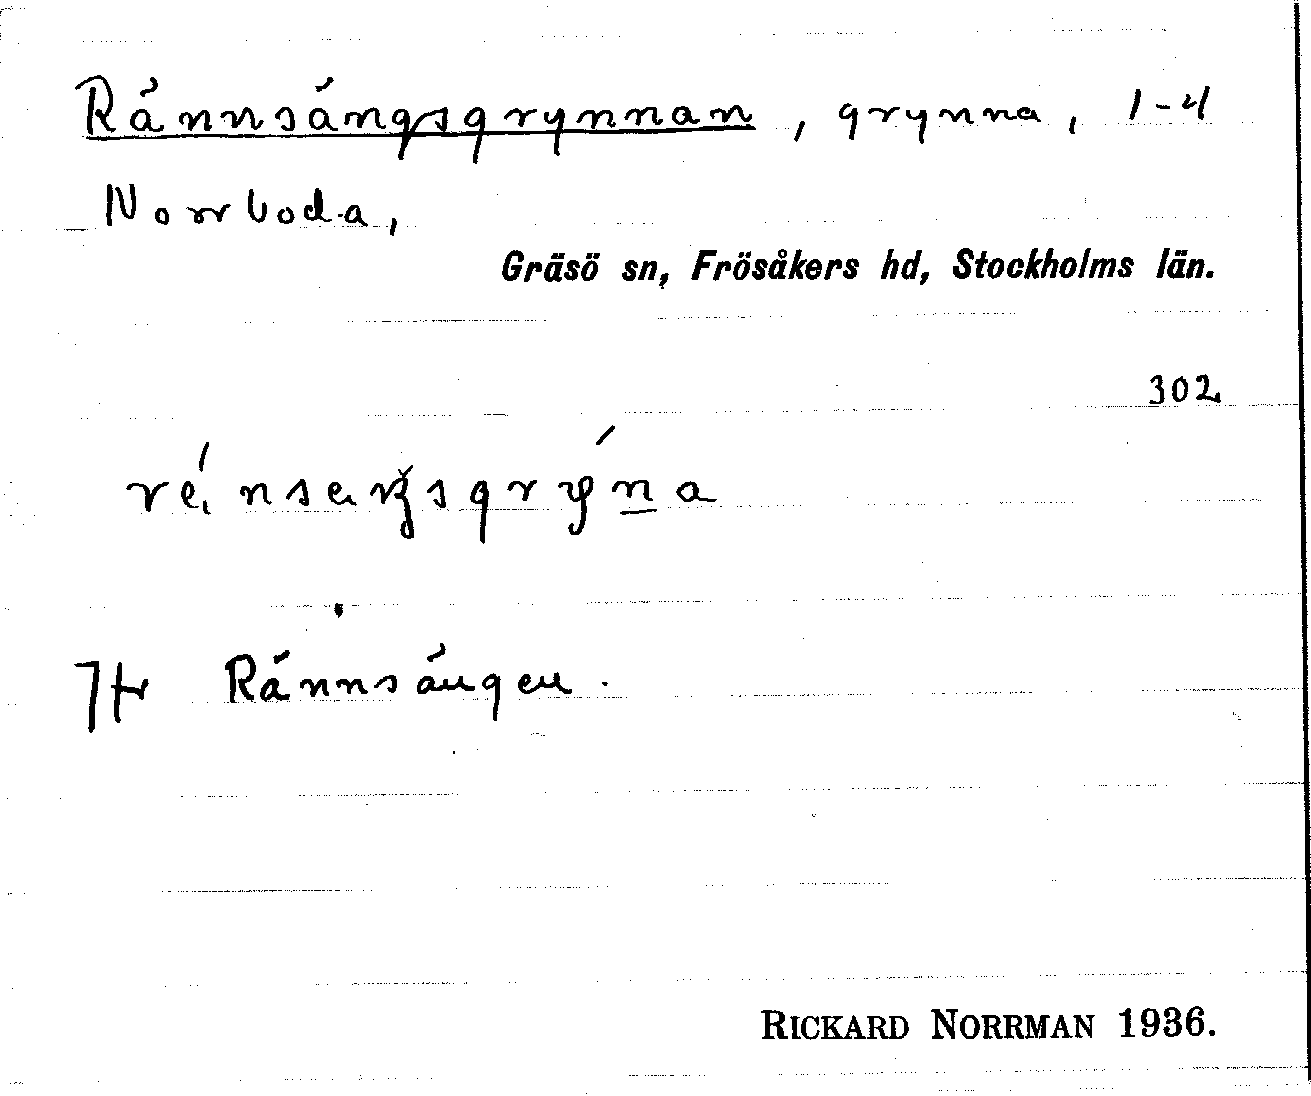 Rännsängsgrynnan, grynna, 1-4
Norrboda,
Gräsö sn, Frösåkers hd, Stockholms län.
302
Rännsängen.
RICKARD NORRMAN 1936.